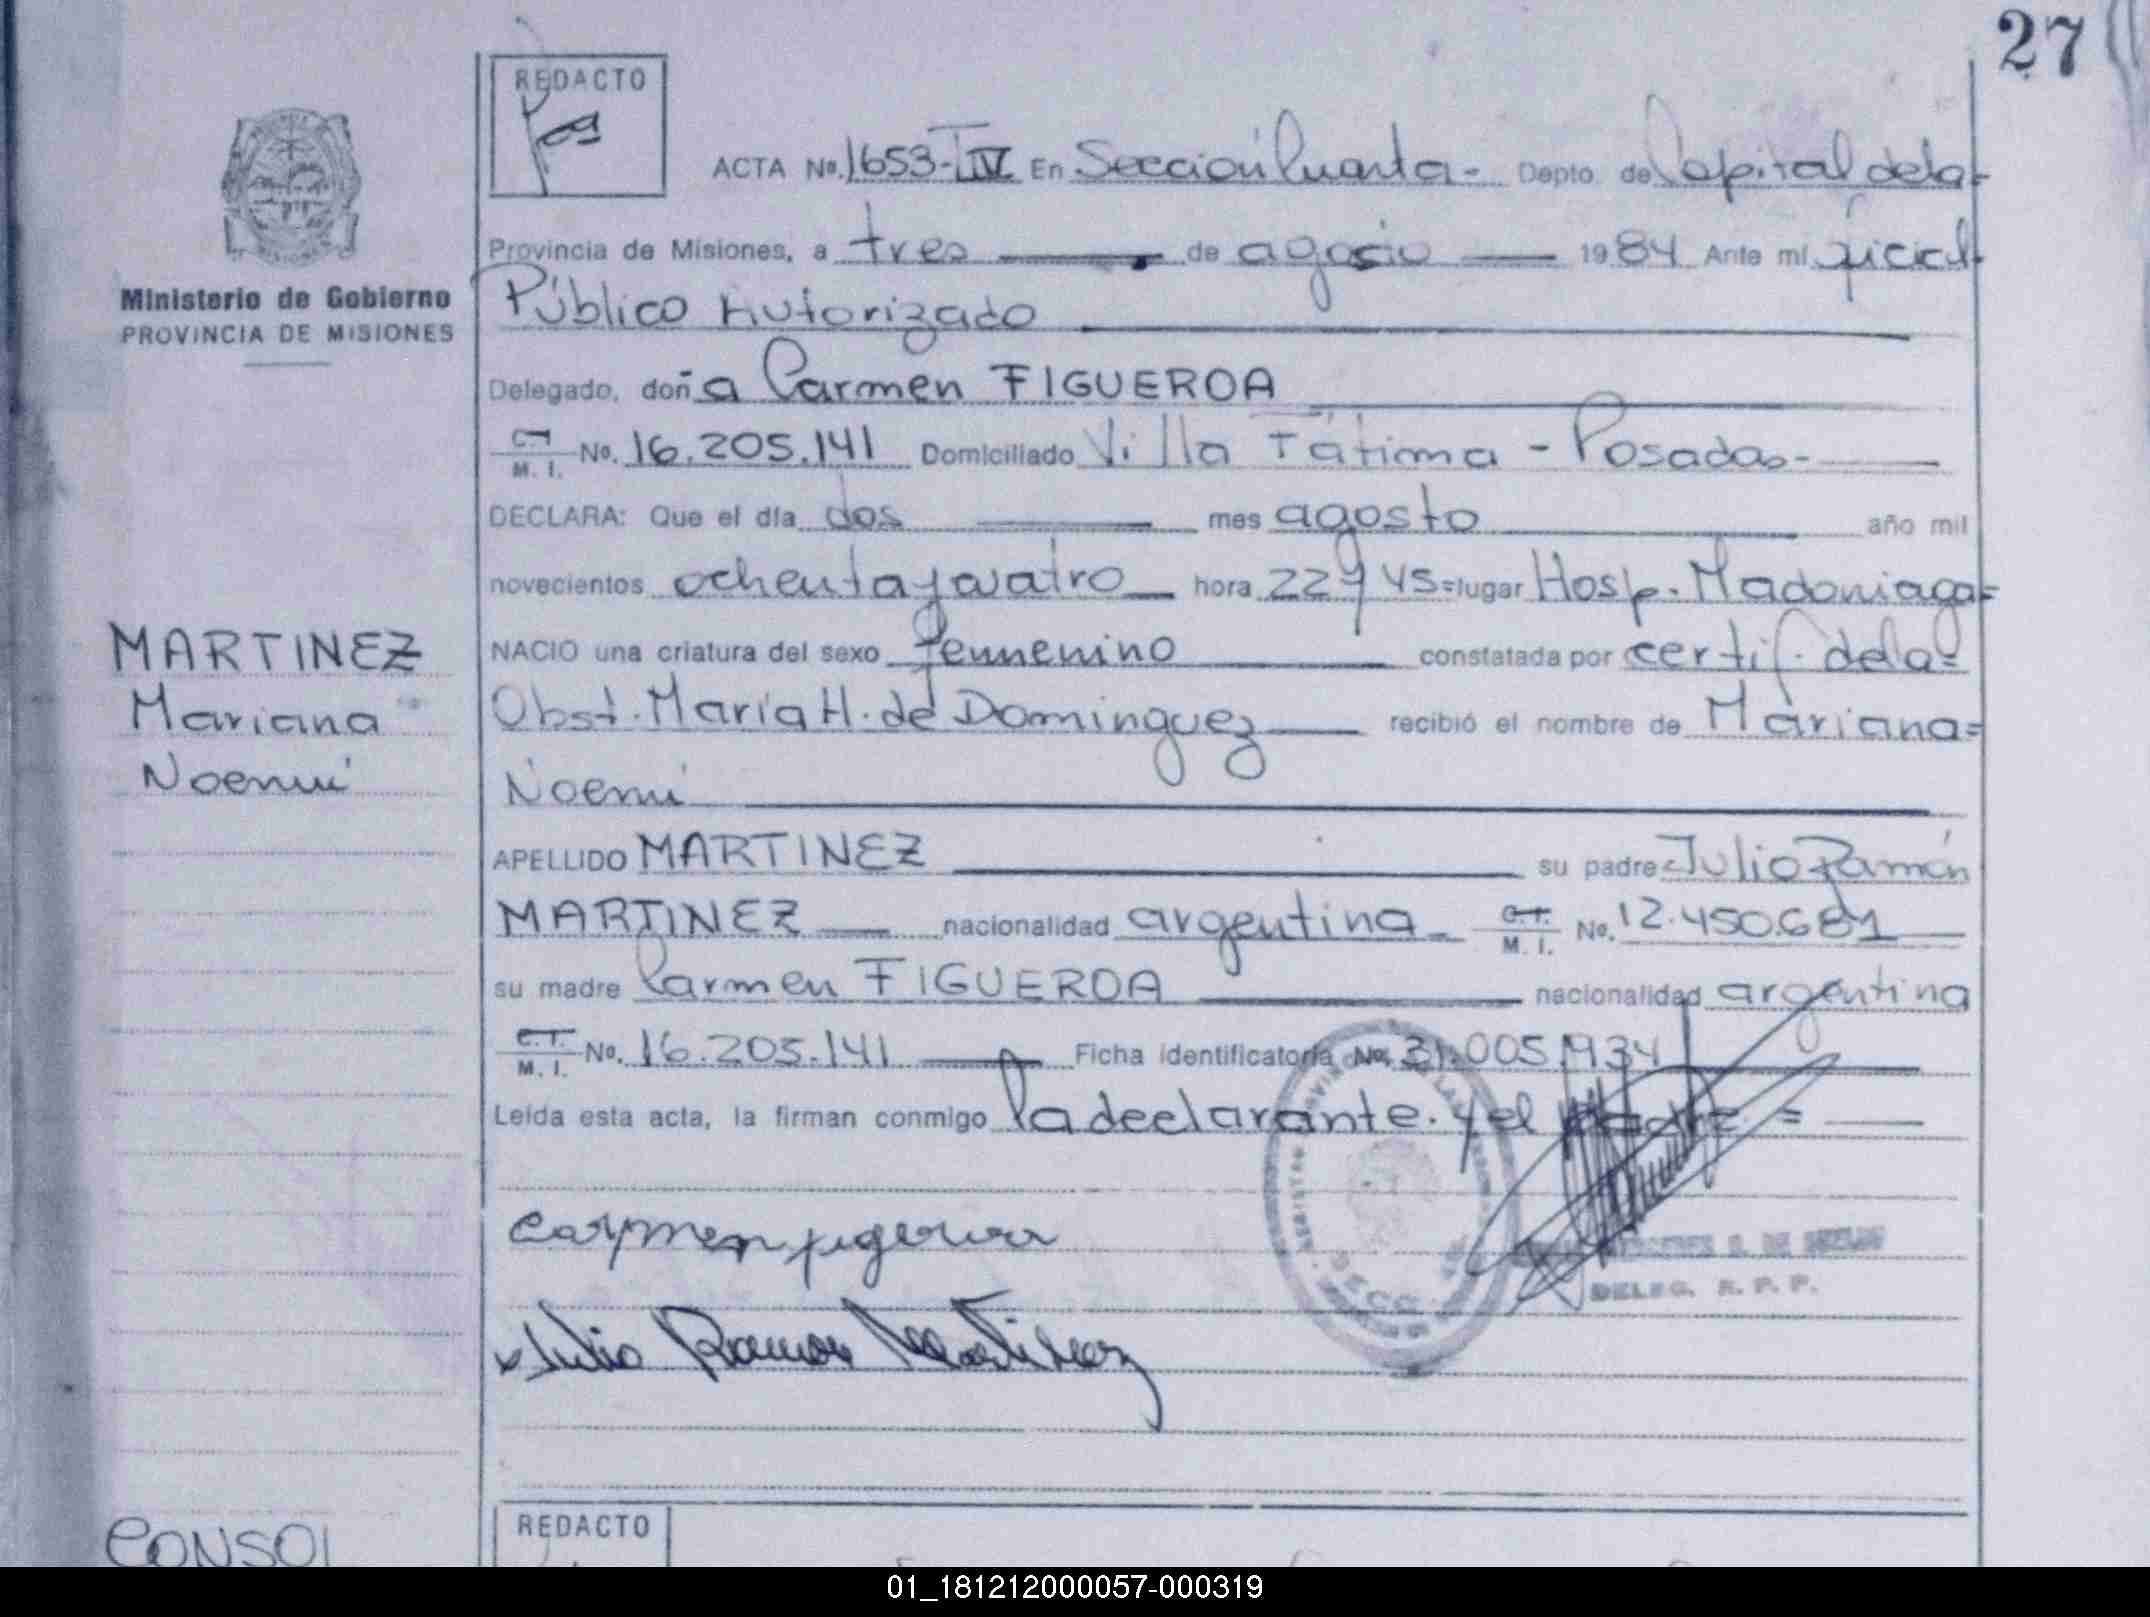 27
REDACTO
ACTA No. 1653-IV En Sección Cuarta- Depto. de Capital de la-
Provincia de Misiones, a tres de agosto 1984 Ante mí oficial
Público Autorizado
Ministerio de Gobierno
PROVINCIA DE MISIONES
Delegado, doña Carmen FIGUEROA
C.I. M. I. No. 16.205.141 Domiciliado Villa Fátima - Posadas-
DECLARA: Que el día dos mes agosto año mil
novecientos ochenta y cuatro hora 22 y 45= lugar Hosp. Madariaga=
NACIO una criatura del sexo femenino constatada por certif. de la=
Obst. María H. de Dominguez recibió el nombre de Mariana=
Noemí
MARTINEZ
Mariana
Noemí
APELLIDO MARTINEZ su padre Julio Ramón
MARTINEZ nacionalidad argentina C.I. M. I. No. 12.450.681
su madre Carmen FIGUEROA nacionalidad argentina
C.I. M. I. No. 16.205.141 Ficha identificatoria No. 31.005.934
Leída esta acta, la firman conmigo la declarante. y el padre =
Carmen figeroa
Julio Ramon Martinez
DELEG. R. P. P.
REDACTO
01_181212000057-000319